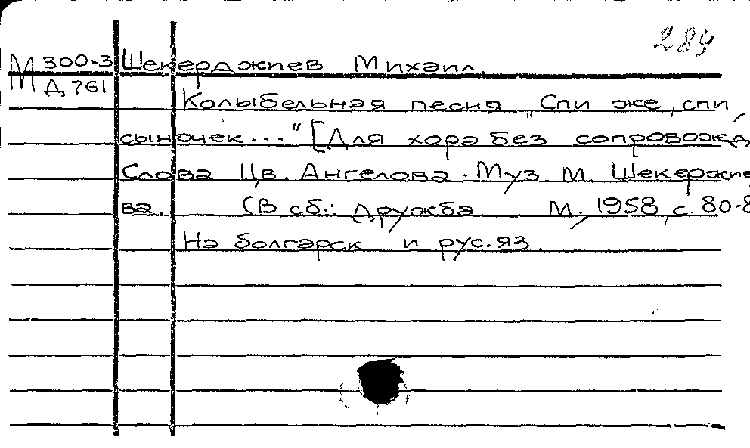 284
М 300-3 Шекерджиев Михаил.
Д 761 Колыбельная песня „Спи же, спи,
сыночек..." [Для хора без сопровожд
Слова Цв. Ангелова. Муз. М. Шекерджие
ва. (В сб.: Дружба М., 1958, с. 80-8
На болгарск и рус. яз.